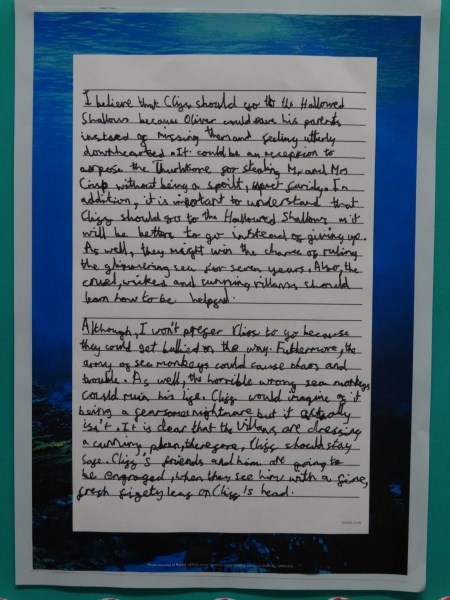 I believe that Cliff should go to the Hallowed
Shallows because Oliver could save his parents
instead of missing them and feeling utterly
downhearted. It could be an exception to
oppose the Thurlstone for stealing Mr and Mrs
Crisp without being a spoilt, upset family. In
addition, it is important to understand that
Cliff should go to the Hallowed Shallows as it
will be better to go instead of giving up.
As well, they might win the chance of ruling
the glimmering sea for seven years. Also, the
cruel, wicked and cunning villains should
learn how to be helpful.
Although, I won't prefer Cliff to go because
they could get bullied on the way. Futhermore, the
army of sea monkeys could cause chaos and
trouble. As well, the horrible wrong sea monkeys
could ruin his life. Cliff would imagine if it
being a fearsome nightmare but it actually
isn't. It is clear that the villans are
a cunning plan, therefore, Cliff should stay
safe. Cliff's friends and him are going to
be engroged, when they see him with a fine,
fresh leaf on Cliff's head.